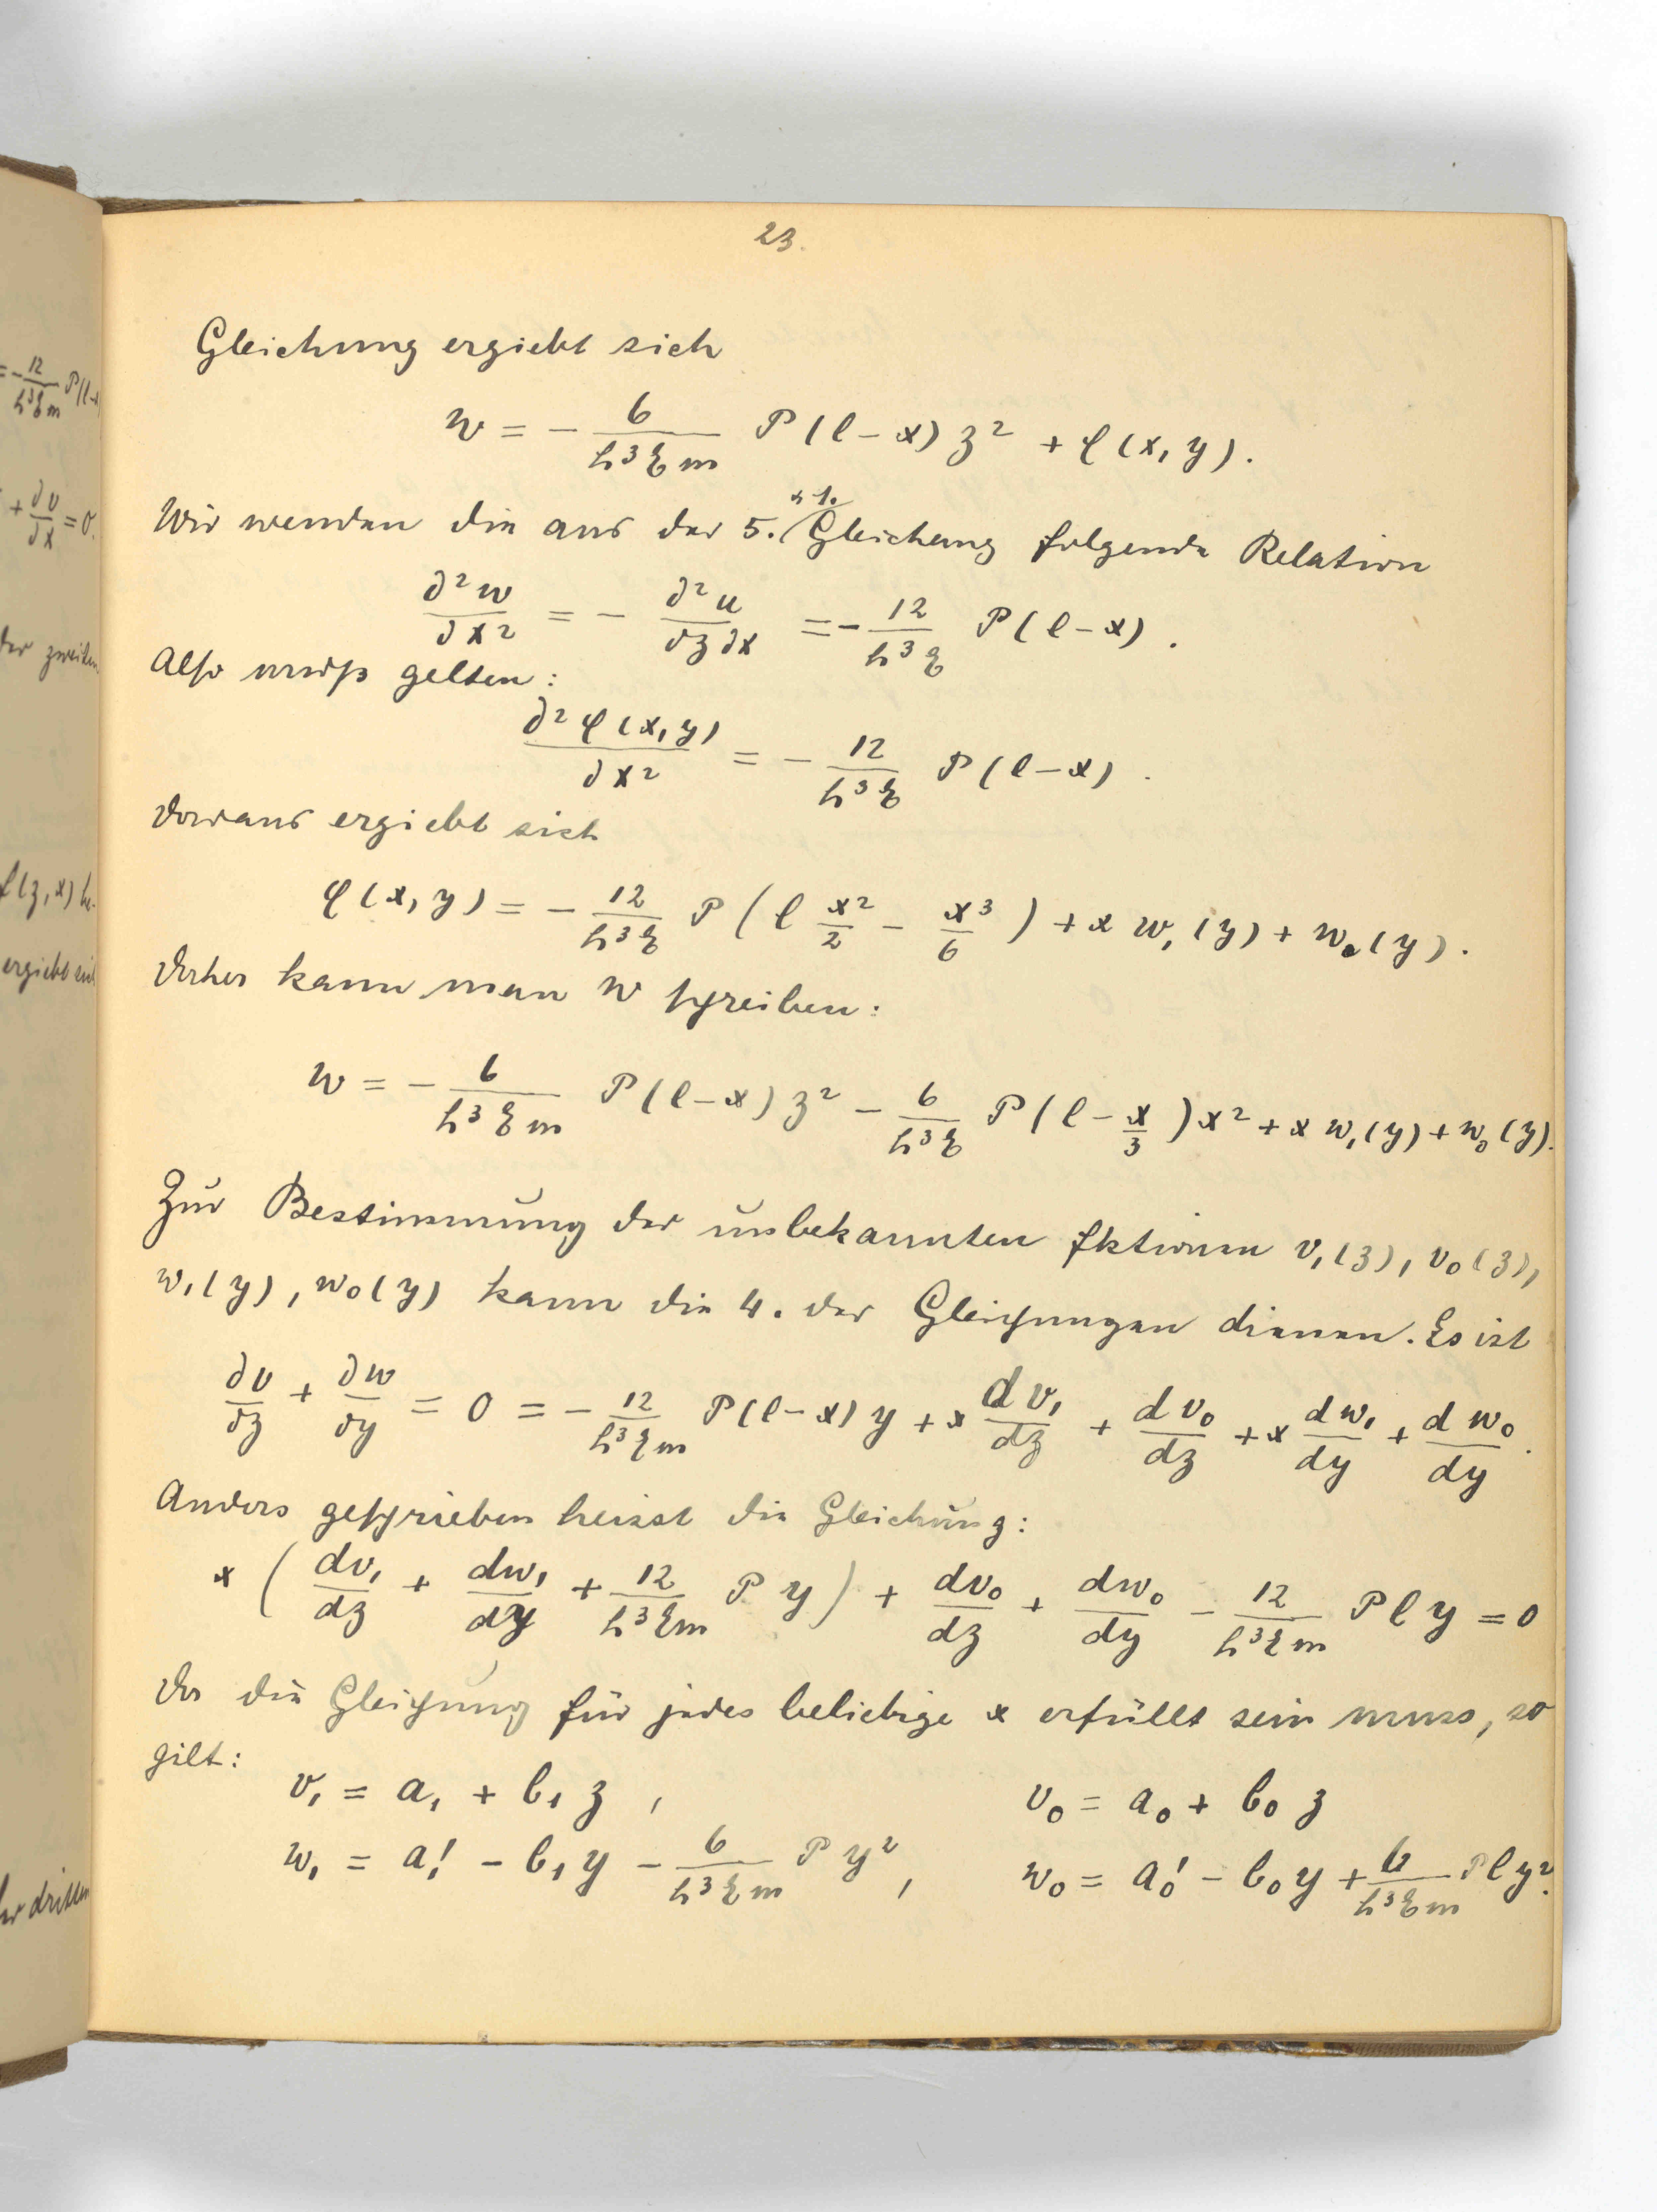 23.
Gleichung ergiebt sich
w = - 6/(h³ξm) P(l-x) z² + φ(x,y).
Wir wenden die aus der 5. u 1. Gleichung folgende Relation
∂²w/∂x² = - ∂²u/∂z∂x = - 12/(h³ξ) P(l-x).
Also muß gelten:
∂²φ(x,y)/∂x² = - 12/(h³ξ) P(l-x).
Daraus ergiebt sich
φ(x,y) = - 12/(h³ξ) P(l x²/2 - x³/6) + x w₁(y) + w₀(y).
Daher kann man w schreiben:
w = - 6/(h³ξm) P(l-x) z² - 6/(h³ξ) P(l - x/3) x² + x w₁(y) + w₀(y).
Zur Bestimmung der unbekannten fktionen v₁(z), v₀(z),
w₁(y), w₀(y) kann die 4. der Gleichungen dienen. Es ist
∂v/∂z + ∂w/∂y = 0 = - 12/(h³ξm) P(l-x) y + x dv₁/dz + dv₀/dz + x dw₁/dy + dw₀/dy.
Anders geschrieben heisst die Gleichung:
x (dv₁/dz + dw₁/dy + 12/(h³ξm) P y) + dv₀/dz + dw₀/dy - 12/(h³ξm) P l y = 0
Da die Gleichung für jedes beliebige x erfüllt sein muss, so
gilt:
v₁ = a₁ + b₁ z , v₀ = a₀ + b₀ z
w₁ = a₁' - b₁ y - 6/(h³ξm) P y², w₀ = a₀' - b₀ y + 6/(h³ξm) P l y².
= - 12/(h³ξm) P(l-x
+ ∂v/∂x = 0.
der zweiten
f(z,x)
ergiebt sich
dritten